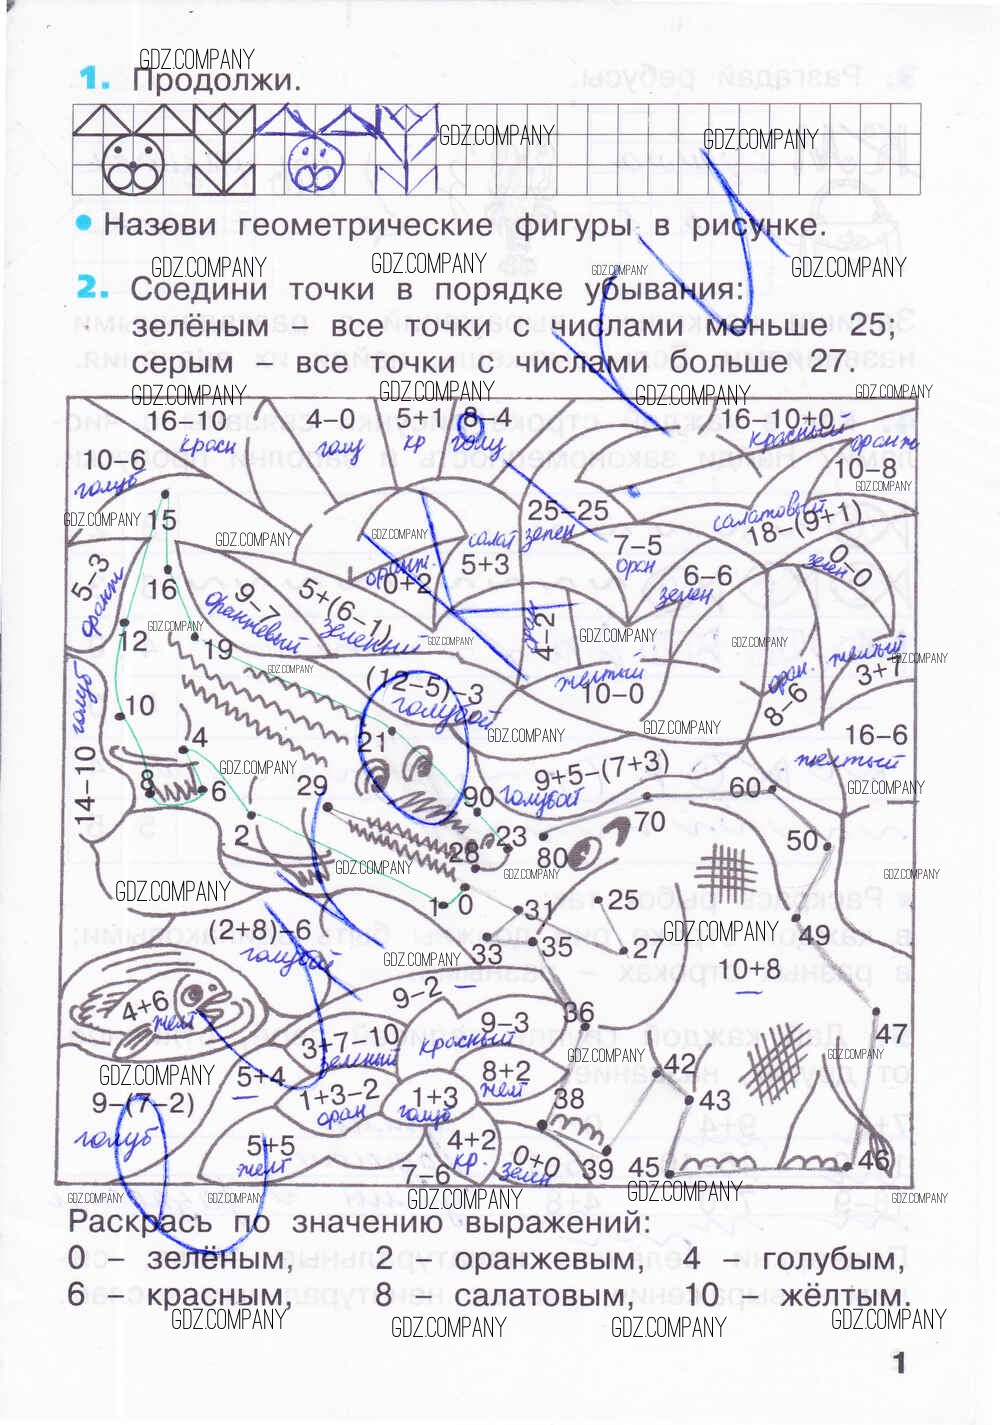 GDZ.COMPANY
1. Продолжи.
GDZ.COMPANY GDZ.COMPANY
Назови геометрические фигуры в рисунке.
GDZ.COMPANY GDZ.COMPANY GDZ.COMPANY GDZ.COMPANY
2. Соедини точки в порядке убывания:
зелёным – все точки с числами меньше 25;
серым – все точки с числами больше 27.
GDZ.COMPANY GDZ.COMPANY GDZ.COMPANY GDZ.COMPANY
16–10 4–0 5+1 8–4 16–10+0
красн голу кр голу красный оранж
10–6 10–8
голуб
GDZ.COMPANY
15 25–25 18–(9+1)
GDZ.COMPANY салатовый
GDZ.COMPANY GDZ.COMPANY салат зелен
5–3 0+2 5+3 7–5 0–0
оранж оранж. оран зелен
16 9–7 5+(6–1) 6–6
оранжевый зеленый зелен
GDZ.COMPANY GDZ.COMPANY GDZ.COMPANY GDZ.COMPANY
12 19 4–2 3+7
оран желтый
GDZ.COMPANY GDZ.COMPANY
(12–5)–3 10–0 8–6
голубой желтый оран.
10 21 16–6
голуб GDZ.COMPANY GDZ.COMPANY желтый
4
14–10 GDZ.COMPANY 9+5–(7+3)
8 6 29 90 голубой 60 GDZ.COMPANY
2 28 23 80 70 50
GDZ.COMPANY GDZ.COMPANY GDZ.COMPANY
GDZ.COMPANY 1 0 31 25
(2+8)–6 33 35 27 GDZ.COMPANY 49
голубой GDZ.COMPANY 10+8
4+6 9–2 9–3 36 47
желт 3+7–10 красный
зеленый GDZ.COMPANY GDZ.COMPANY
GDZ.COMPANY 5+4 8+2 42
9–(7–2) 1+3–2 1+3 желт 38 43
голуб оран голуб
5+5 4+2 0+0
желт 7–6 кр. зелен 39 45 46
GDZ.COMPANY GDZ.COMPANY GDZ.COMPANY GDZ.COMPANY GDZ.COMPANY GDZ.COMPANY
Раскрась по значению выражений:
0 – зелёным, 2 – оранжевым, 4 – голубым,
6 – красным, 8 – салатовым, 10 – жёлтым.
GDZ.COMPANY GDZ.COMPANY GDZ.COMPANY GDZ.COMPANY
1